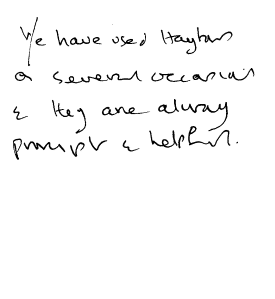 We have used Hayhurs
on several occasions
& they are always
prompt & helpful.